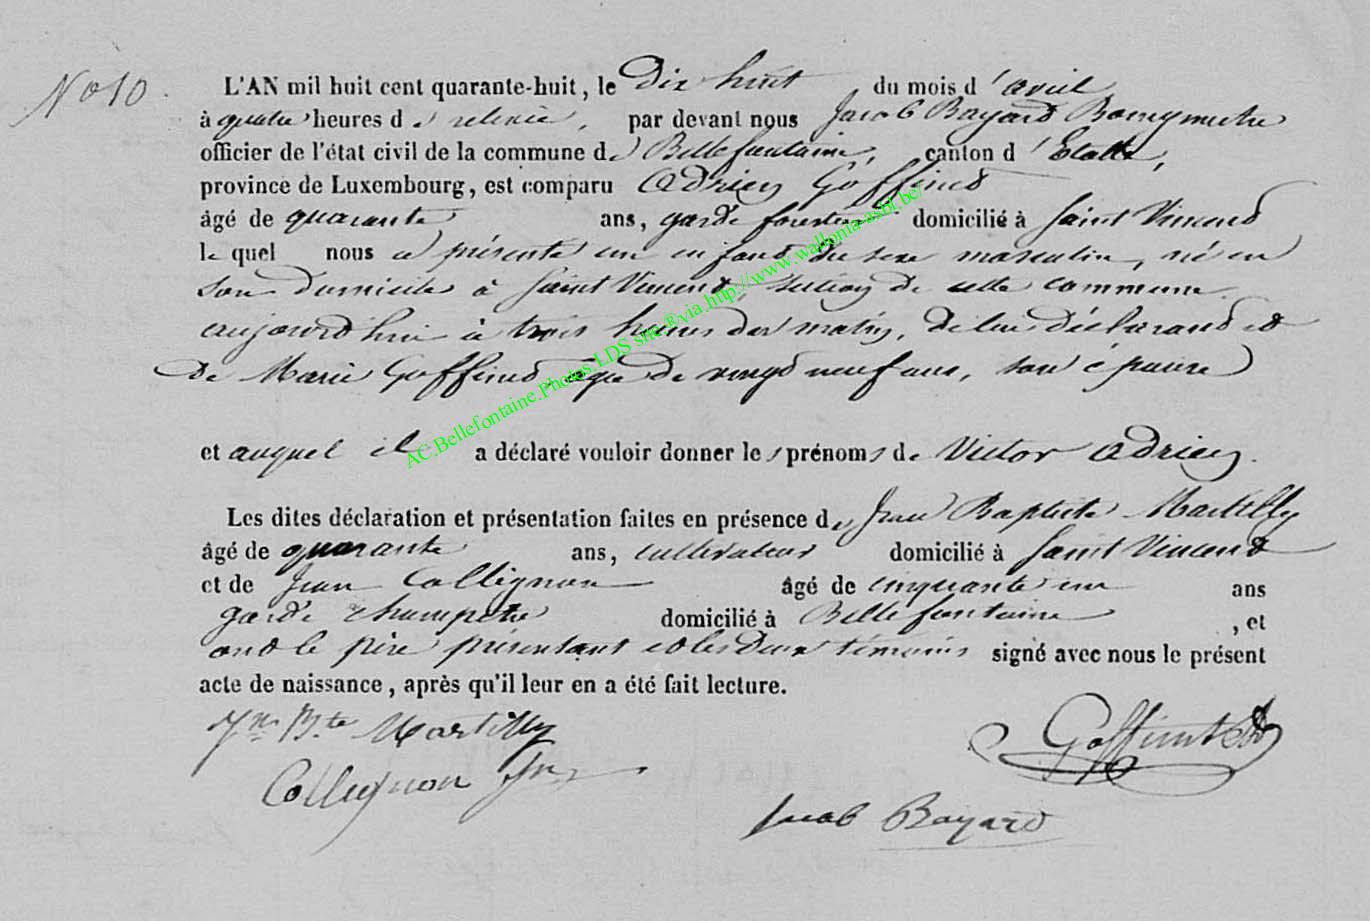 No 10.
L'AN mil huit cent quarante-huit, le Dix huit du mois d'avril
à quatre heures de relevée, par devant nous Jacob Bayard Bourgmestre
officier de l'état civil de la commune de Bellefontaine, canton d'Etalle,
province de Luxembourg, est comparu Adrien Goffinet
âgé de quarante ans, garde forestier domicilié à Saint Vincent
le quel nous a présenté un enfant du sexe masculin, né en
son domicile à Saint Vincent, section de cette commune
aujourd'hui à trois heures du matin, de lui déclarant et
de Marie Goffinet âgée de vingt neuf ans, son épouse
et auquel il a déclaré vouloir donner les prénoms de Victor Adrien.
Les dites déclaration et présentation faites en présence de Jean Baptiste Martilly
âgé de quarante ans, cultivateur domicilié à Saint Vincent
et de Jean Collignon âgé de cinquante un ans
garde champêtre domicilié à Bellefontaine, et
ont le père présentant et les deux témoins signé avec nous le présent
acte de naissance, après qu'il leur en a été fait lecture.
Jn Bte Martilly
Goffinet
Collignon Jn
Jacob Bayard
AC.Bellefontaine.Photos LDS site ® via http://www.wallonia-asbl.be/